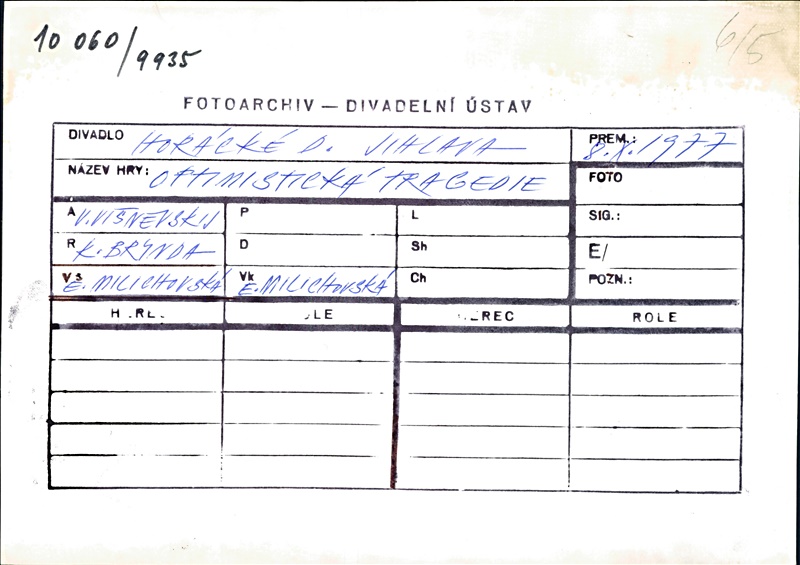 10 060/9935
6/5
FOTOARCHIV — DIVADELNÍ ÚSTAV
DIVADLO HORÁCKÉ D. JIHLAVA PREM.: 8.X.1977
NÁZEV HRY: OPTIMISTICKÁ TRAGEDIE FOTO
A V. VIŠNEVSKIJ P L SIG.:
R K. BRYNDA D Sh E/
Vs E. MILICHOVSKÁ Vk E. MILICHOVSKÁ Ch POZN.:
H RE LE EREC ROLE